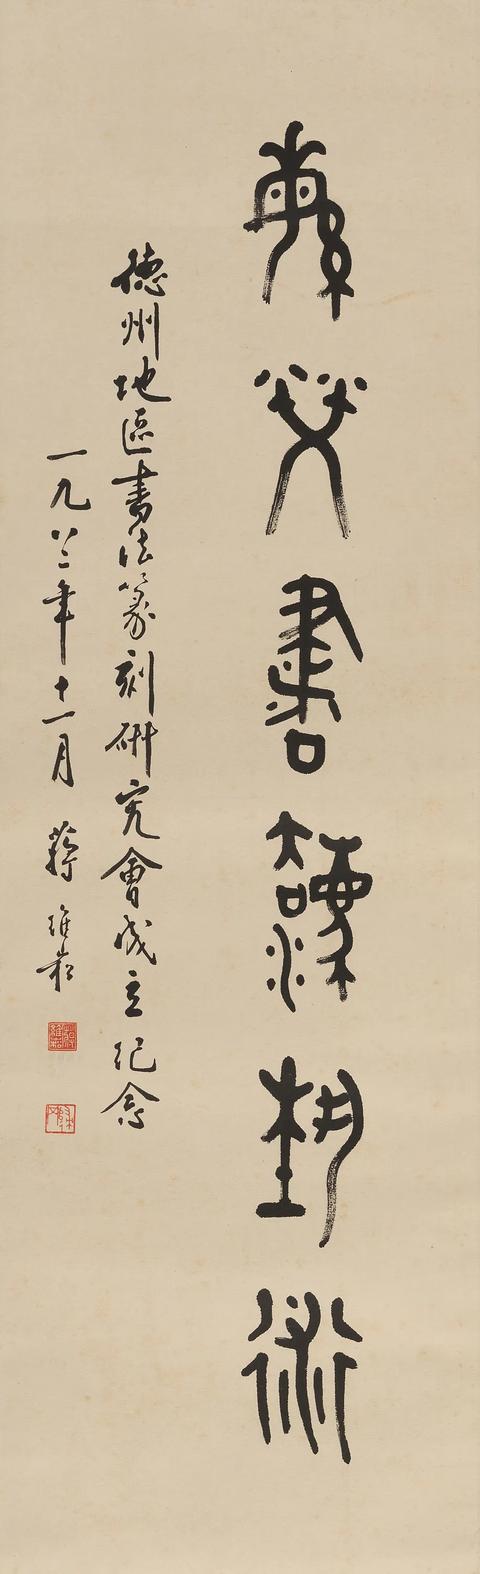 繁榮書灋藝術
德州地區書法篆刻研究會成立紀念
一九八二年十一月 蔣維崧